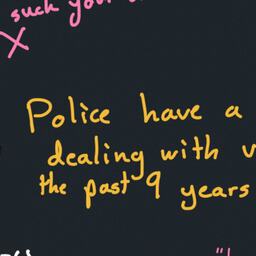 suck your
Police have a
dealing with
the past 9 years